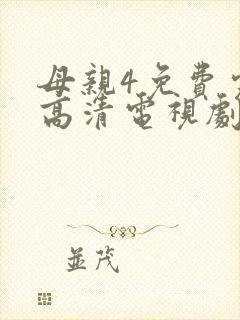 母親4免費
高清電視劇
並茂